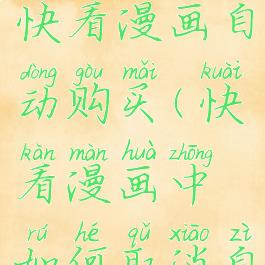 快看漫画自
dòng gòu mǎi kuài
动购买(快
kàn màn huà zhōng
看漫画中
rú hé qǔ xiāo zì
如何取消自